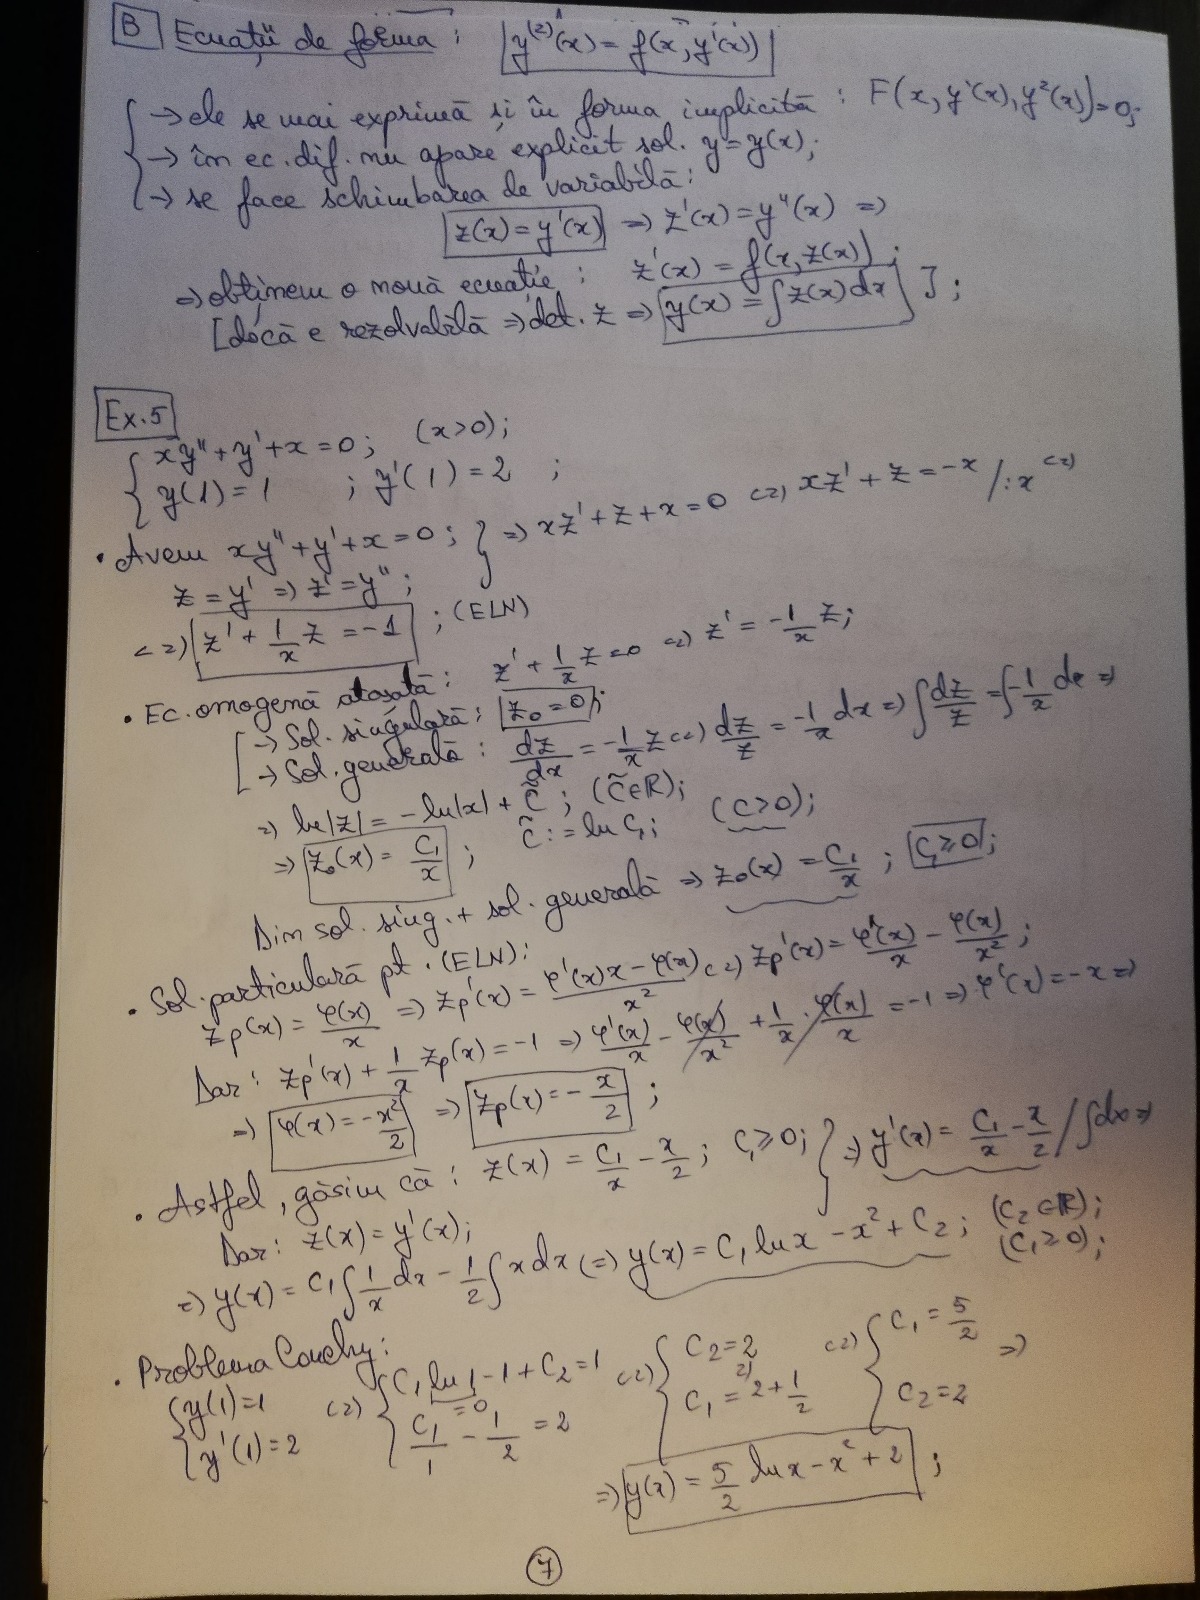 B Ecuații de forma : y⁽²⁾(x) = f(x, y'(x))
→ ele se mai exprimă și în forma implicită : F(x, y'(x), y²(x)) = 0;
→ în ec. dif. nu apare explicit sol. y = y(x);
→ se face schimbarea de variabilă:
z(x) = y'(x) => z'(x) = y''(x) =>
=> obținem o nouă ecuație : z'(x) = f(x, z(x));
[dacă e rezolvabilă => det. z => y(x) = ∫z(x)dx ];
Ex. 5
{ xy'' + y' + x = 0; (x>0);
y(1) = 1 ; y'(1) = 2 ;
• Avem xy'' + y' + x = 0; } => xz' + z + x = 0 <=> xz' + z = -x /:x <=>
z = y' => z' = y'';
<=> z' + 1/x z = -1 ; (ELN)
• Ec. omogenă atașată: z' + 1/x z = 0 <=> z' = -1/x z;
[→ Sol. singulară: z₀ = 0;
→ Sol. generală: dz/dx = -1/x z <=> dz/z = -1/x dx => ∫dz/z = ∫-1/x dx =>
=> ln|z| = -ln|x| + c̃; (c̃∈ℝ);
=> z₀(x) = C₁/x ; c̃ := ln C₁; (C>0);
Din sol. sing. + sol. generală => z₀(x) = C₁/x ; C₁≥0;
• Sol. particulară pt. (ELN):
zp(x) = φ(x)/x => zp'(x) = (φ'(x)x - φ(x))/x² <=> zp'(x) = φ'(x)/x - φ(x)/x² ;
Dar: zp'(x) + 1/x zp(x) = -1 => φ'(x)/x - φ(x)/x² + 1/x · φ(x)/x = -1 => φ'(x) = -x =>
=> φ(x) = -x²/2 => zp(x) = -x/2 ;
• Astfel, găsim că: z(x) = C₁/x - x/2; C₁≥0; } => y'(x) = C₁/x - x/2 /∫dx =>
Dar: z(x) = y'(x);
=> y(x) = C₁∫1/x dx - 1/2∫x dx (=> y(x) = C₁ ln x - x² + C₂; (C₂∈ℝ); (C₁≥0);
• Problema Cauchy:
{ y(1) = 1 <=> { C₁ ln 1 - 1 + C₂ = 1 <=> { C₂ = 2 <=> { C₁ = 5/2 =>
y'(1) = 2 =0 C₁/1 - 1/2 = 2 C₁ = 2 + 1/2 C₂ = 2
=> y(x) = 5/2 ln x - x² + 2 ;
7